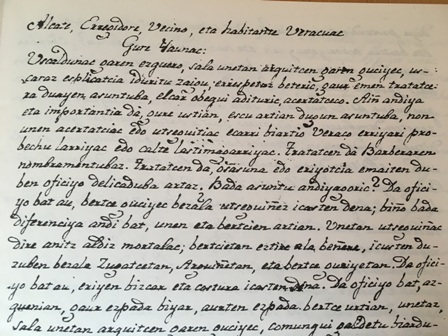 Alcate, Erregidore, Vecino, eta habitante Veracuac
Gure Jaunac:
Uscaldunac garen ezquero, sala unetan arquitcen garen guciyec, us-
caraz esplicatcia iduritu zaiou, errespetoz beteric, gaur emen tratatce-
ra duayen, asuntuba, elcar obequi adituric, acertatceco. Aiñ andiya
eta importantia da gure ustián, escu artian dugun asuntuba, non
unen acertatciac edo utseguitiac ecarri biartio Veraco erriyari pro-
bechu larriyac edo calte lastimagarriyac. Tratatcen da Barberaren
nombramentubaz. Tratatcen da, osasuna edo eriyotcia emaiten du-
ben oficiyo delicaduba artaz. Bada asuntu andiyagoric? Da ofici-
yo bat au, bertce guciyec bezala utseguiñez icasten dena; biño bada
diferenziya andi bat, unen eta bertcien artian. Unetan utseguiñac
dire anitz aldiz mortalac; bertcietan eztire ala beñere, icusten du-
zuben bezala Zapatcetan, Arguiñetan, eta bertce guciyetan. Da ofici-
yo bat au, eriyen bizcar eta costura icasten dena. Da oficiyo bat, az-
quenian, gaur ezpada biyar, aurten ezpada bertce urtian, unetar
Sala unetan arquitcen garen guciyec, comunqui galdetu biardu-